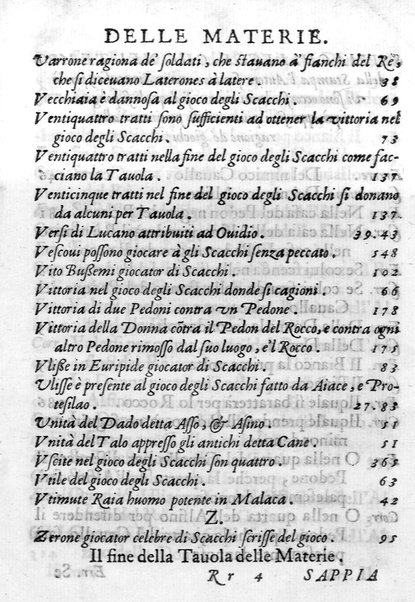 DELLE MATERIE.
Varrone ragiona de' soldati, che stauano à fianchi del Re,
che si diceuano Laterones à latere. 38
Vecchiaia è dannosa al gioco degli Scacchi. 69
Ventiquattro tratti sono sufficienti ad ottener la vittoria nel
gioco degli Scacchi. 73
Ventiquattro tratti nella fine del gioco degli Scacchi come fac-
ciano la Tauola. 137
Venticinque tratti nel fine del gioco degli Scacchi si donano
da alcuni per Tauola. 137.
Versi di Lucano attribuiti ad Ouidio. 39.43
Vescoui possono giocare à gli Scacchi senza peccato. 548
Vito Bussemi giocator di Scacchi. 102
Vittoria nel gioco degli Scacchi donde si cagioni. 66
Vittoria di due Pedoni contra vn Pedone. 178
Vittoria della Donna cõtra il Pedon del Rocco, e contra ogni
altro Pedone rimosso dal suo luogo, e'l Rocco. 175
Vlisse in Euripide giocator di Scacchi. 83
Vlisse è presente al gioco degli Scacchi fatto da Aiace, e Pro-
tesilao. 27.83
Vnità del Dado detta Asso, & Asino. 51
Vnità del Talo appresso gli antichi detta Cane. 51
Vscite nel gioco degli Scacchi son quattro. 365
Vtile del gioco degli Scacchi. 63
Vtimute Raia huomo potente in Malaca. 42
Z.
Zerone giocator celebre di Scacchi scrisse del gioco. 95
Il fine della Tauola delle Materie.
Rr 4 SAPPIA